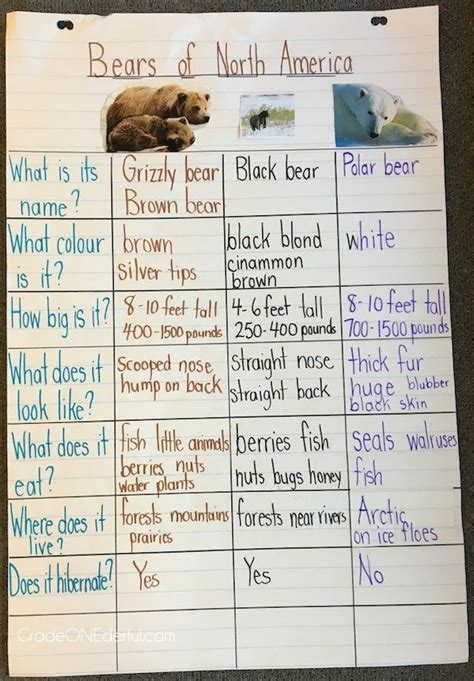 Bears of North America
What is its
name?
Grizzly bear
Brown bear
Black bear
Polar bear
What colour
is it?
brown
silver tips
black blond
cinammon
brown
white
How big is it?
8-10 feet tall
400-1500 pounds
4-6 feet tall
250-400 pounds
8-10 feet tall
700-1500 pounds
What does it
look like?
Scooped nose
hump on back
straight nose
straight back
thick fur
huge blubber
black skin
What does it
eat?
fish little animals
berries nuts
water plants
berries fish
nuts bugs honey
seals walruses
fish
Where does it
live?
forests mountains
prairies
forests near rivers
Arctic
on ice floes
Does it hibernate?
Yes
Yes
No
GradeONEderful.com